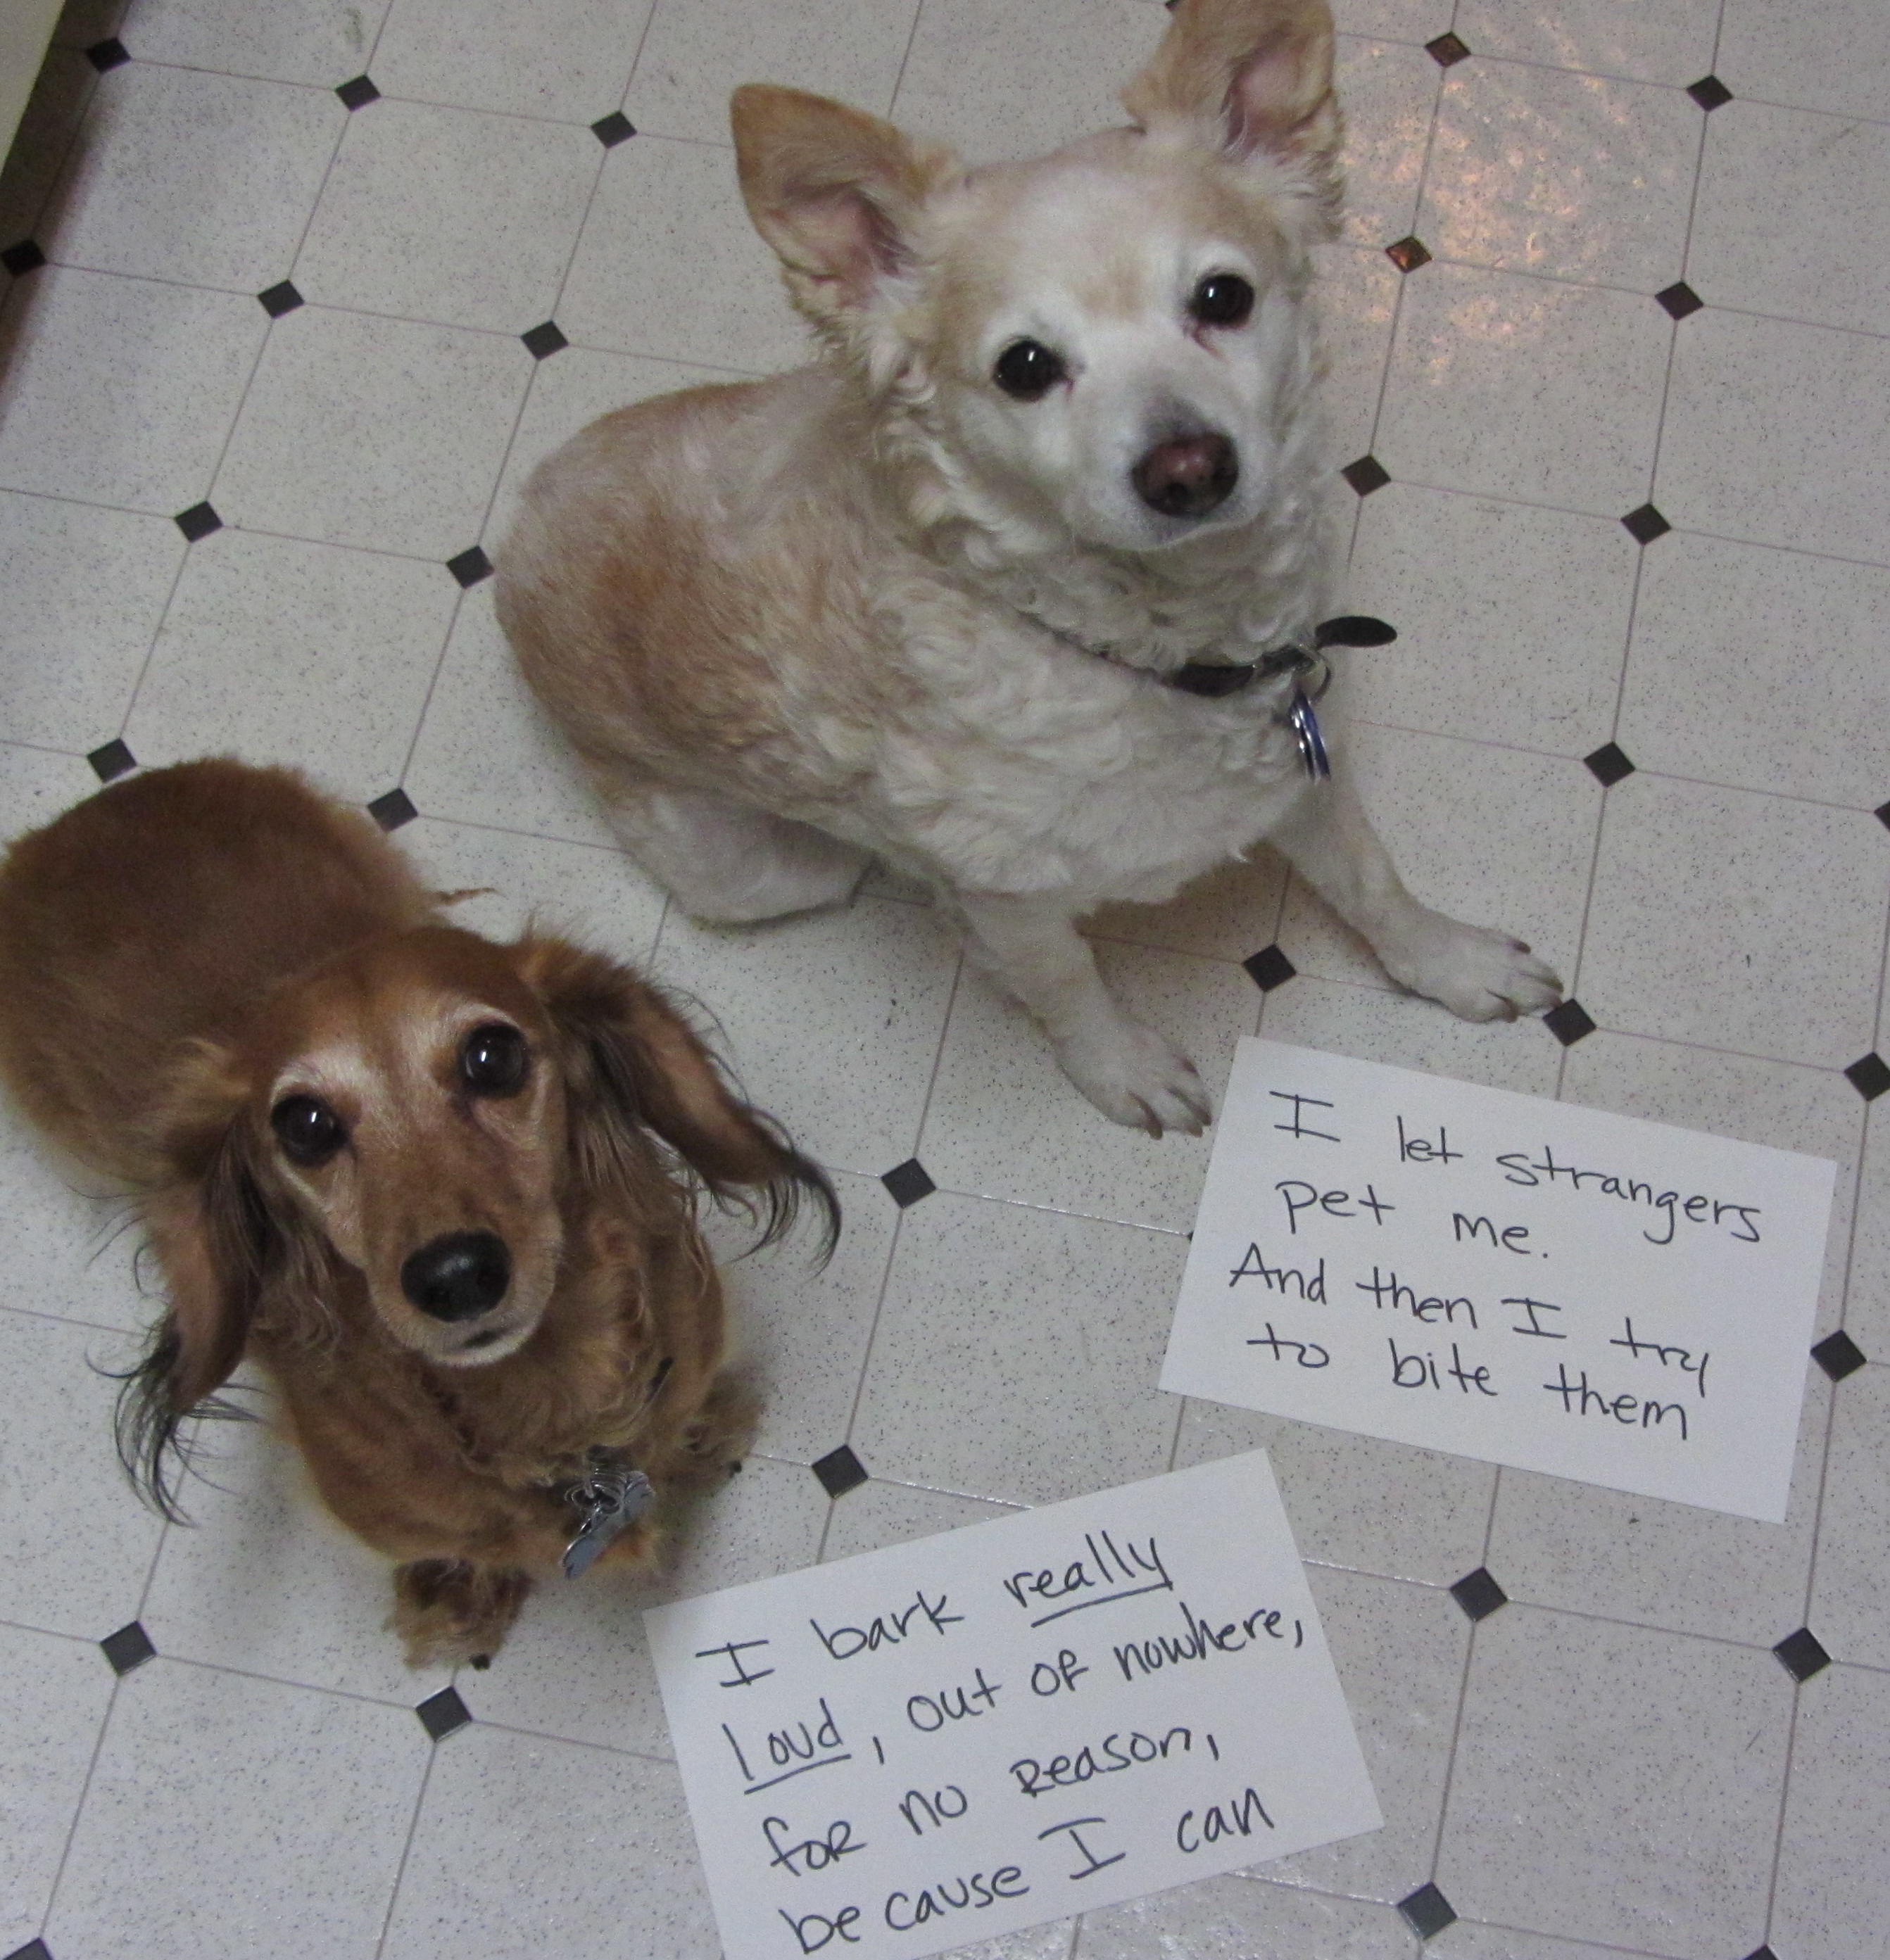 I let strangers
pet me.
And then I try
to bite them
I bark really
loud, out of nowhere,
for no reason,
because I can